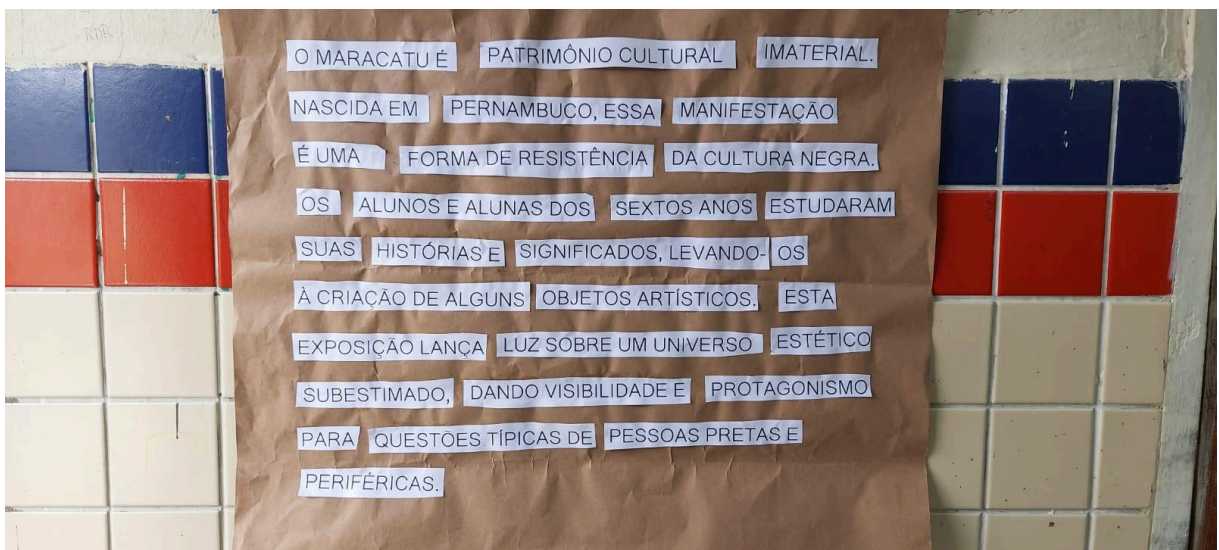 O MARACATU É PATRIMÔNIO CULTURAL IMATERIAL.
NASCIDA EM PERNAMBUCO, ESSA MANIFESTAÇÃO
É UMA FORMA DE RESISTÊNCIA DA CULTURA NEGRA.
OS ALUNOS E ALUNAS DOS SEXTOS ANOS ESTUDARAM
SUAS HISTÓRIAS E SIGNIFICADOS, LEVANDO- OS
À CRIAÇÃO DE ALGUNS OBJETOS ARTÍSTICOS. ESTA
EXPOSIÇÃO LANÇA LUZ SOBRE UM UNIVERSO ESTÉTICO
SUBESTIMADO, DANDO VISIBILIDADE E PROTAGONISMO
PARA QUESTÕES TÍPICAS DE PESSOAS PRETAS E
PERIFÉRICAS.